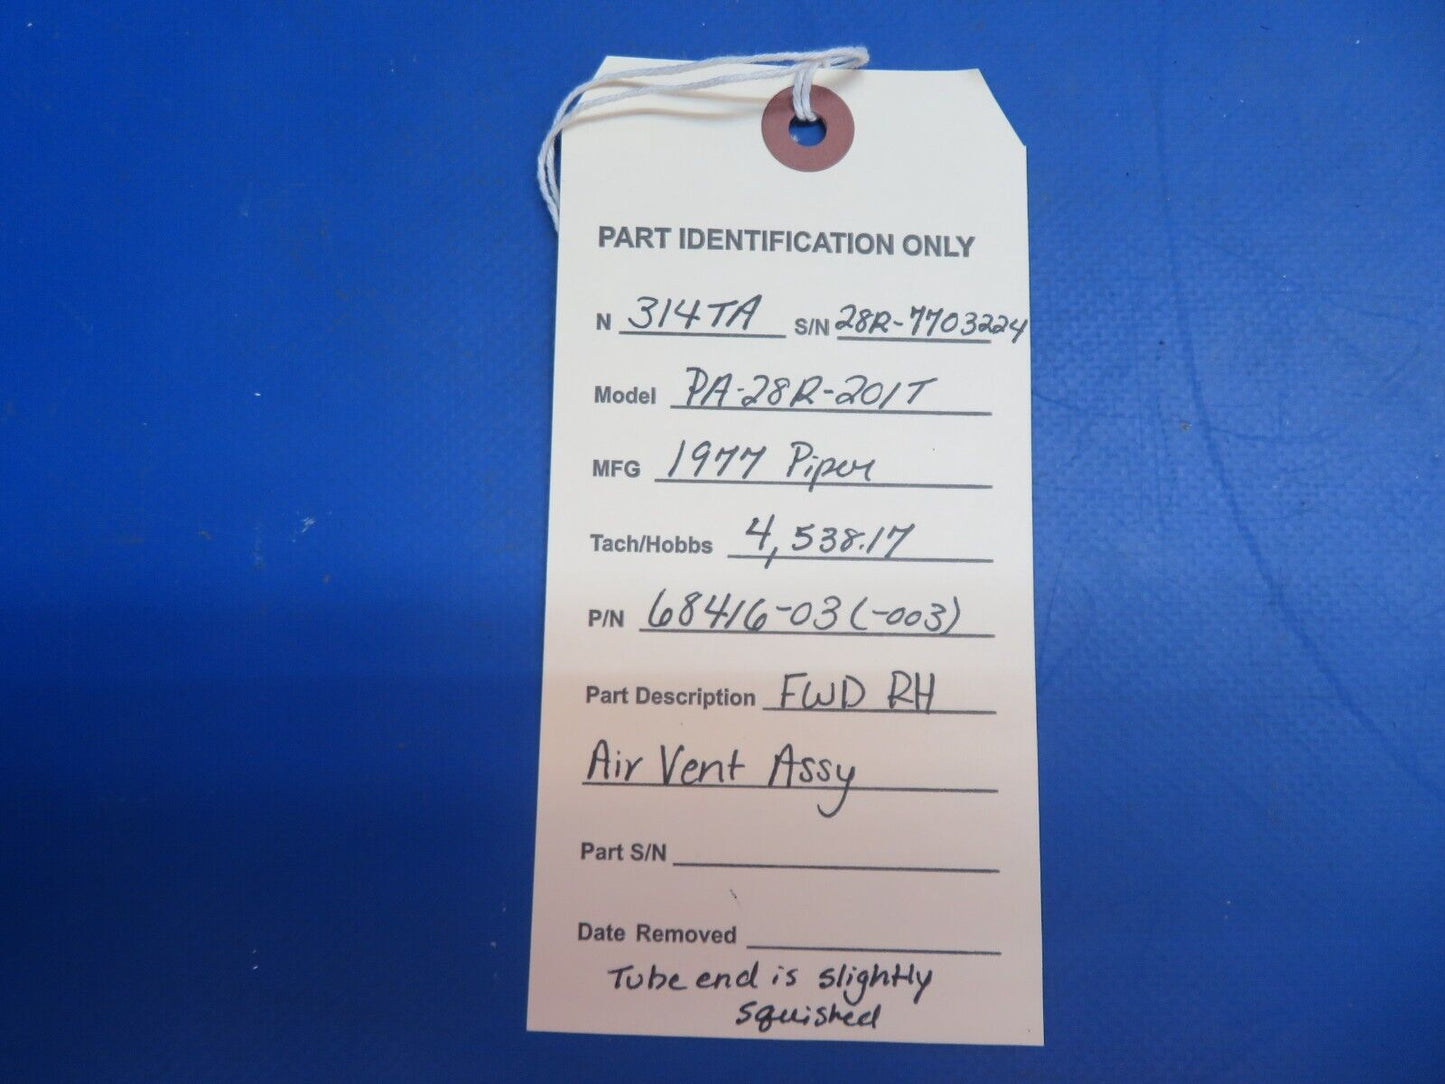 PART IDENTIFICATION ONLY
N 314TA S/N 28R-7703224
Model PA-28R-201T
MFG 1977 Piper
Tach/Hobbs 4,538.17
P/N 68416-03 (-003)
Part Description FWD RH
Air Vent Assy
Part S/N
Date Removed
Tube end is slightly
squished